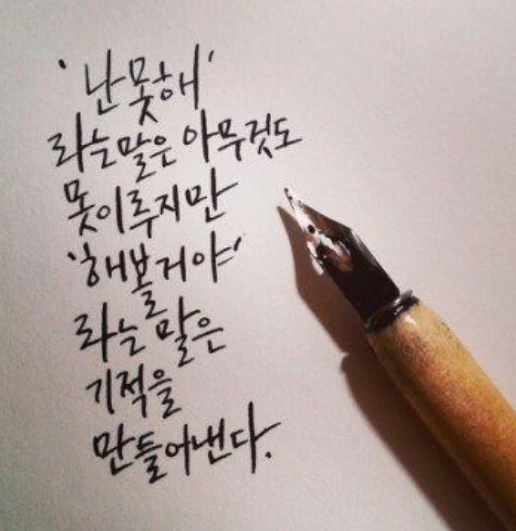 '난 못해'
라는 말은 아무것도
못 이루지만
'해볼거야'
라는 말은
기적을
만들어낸다.